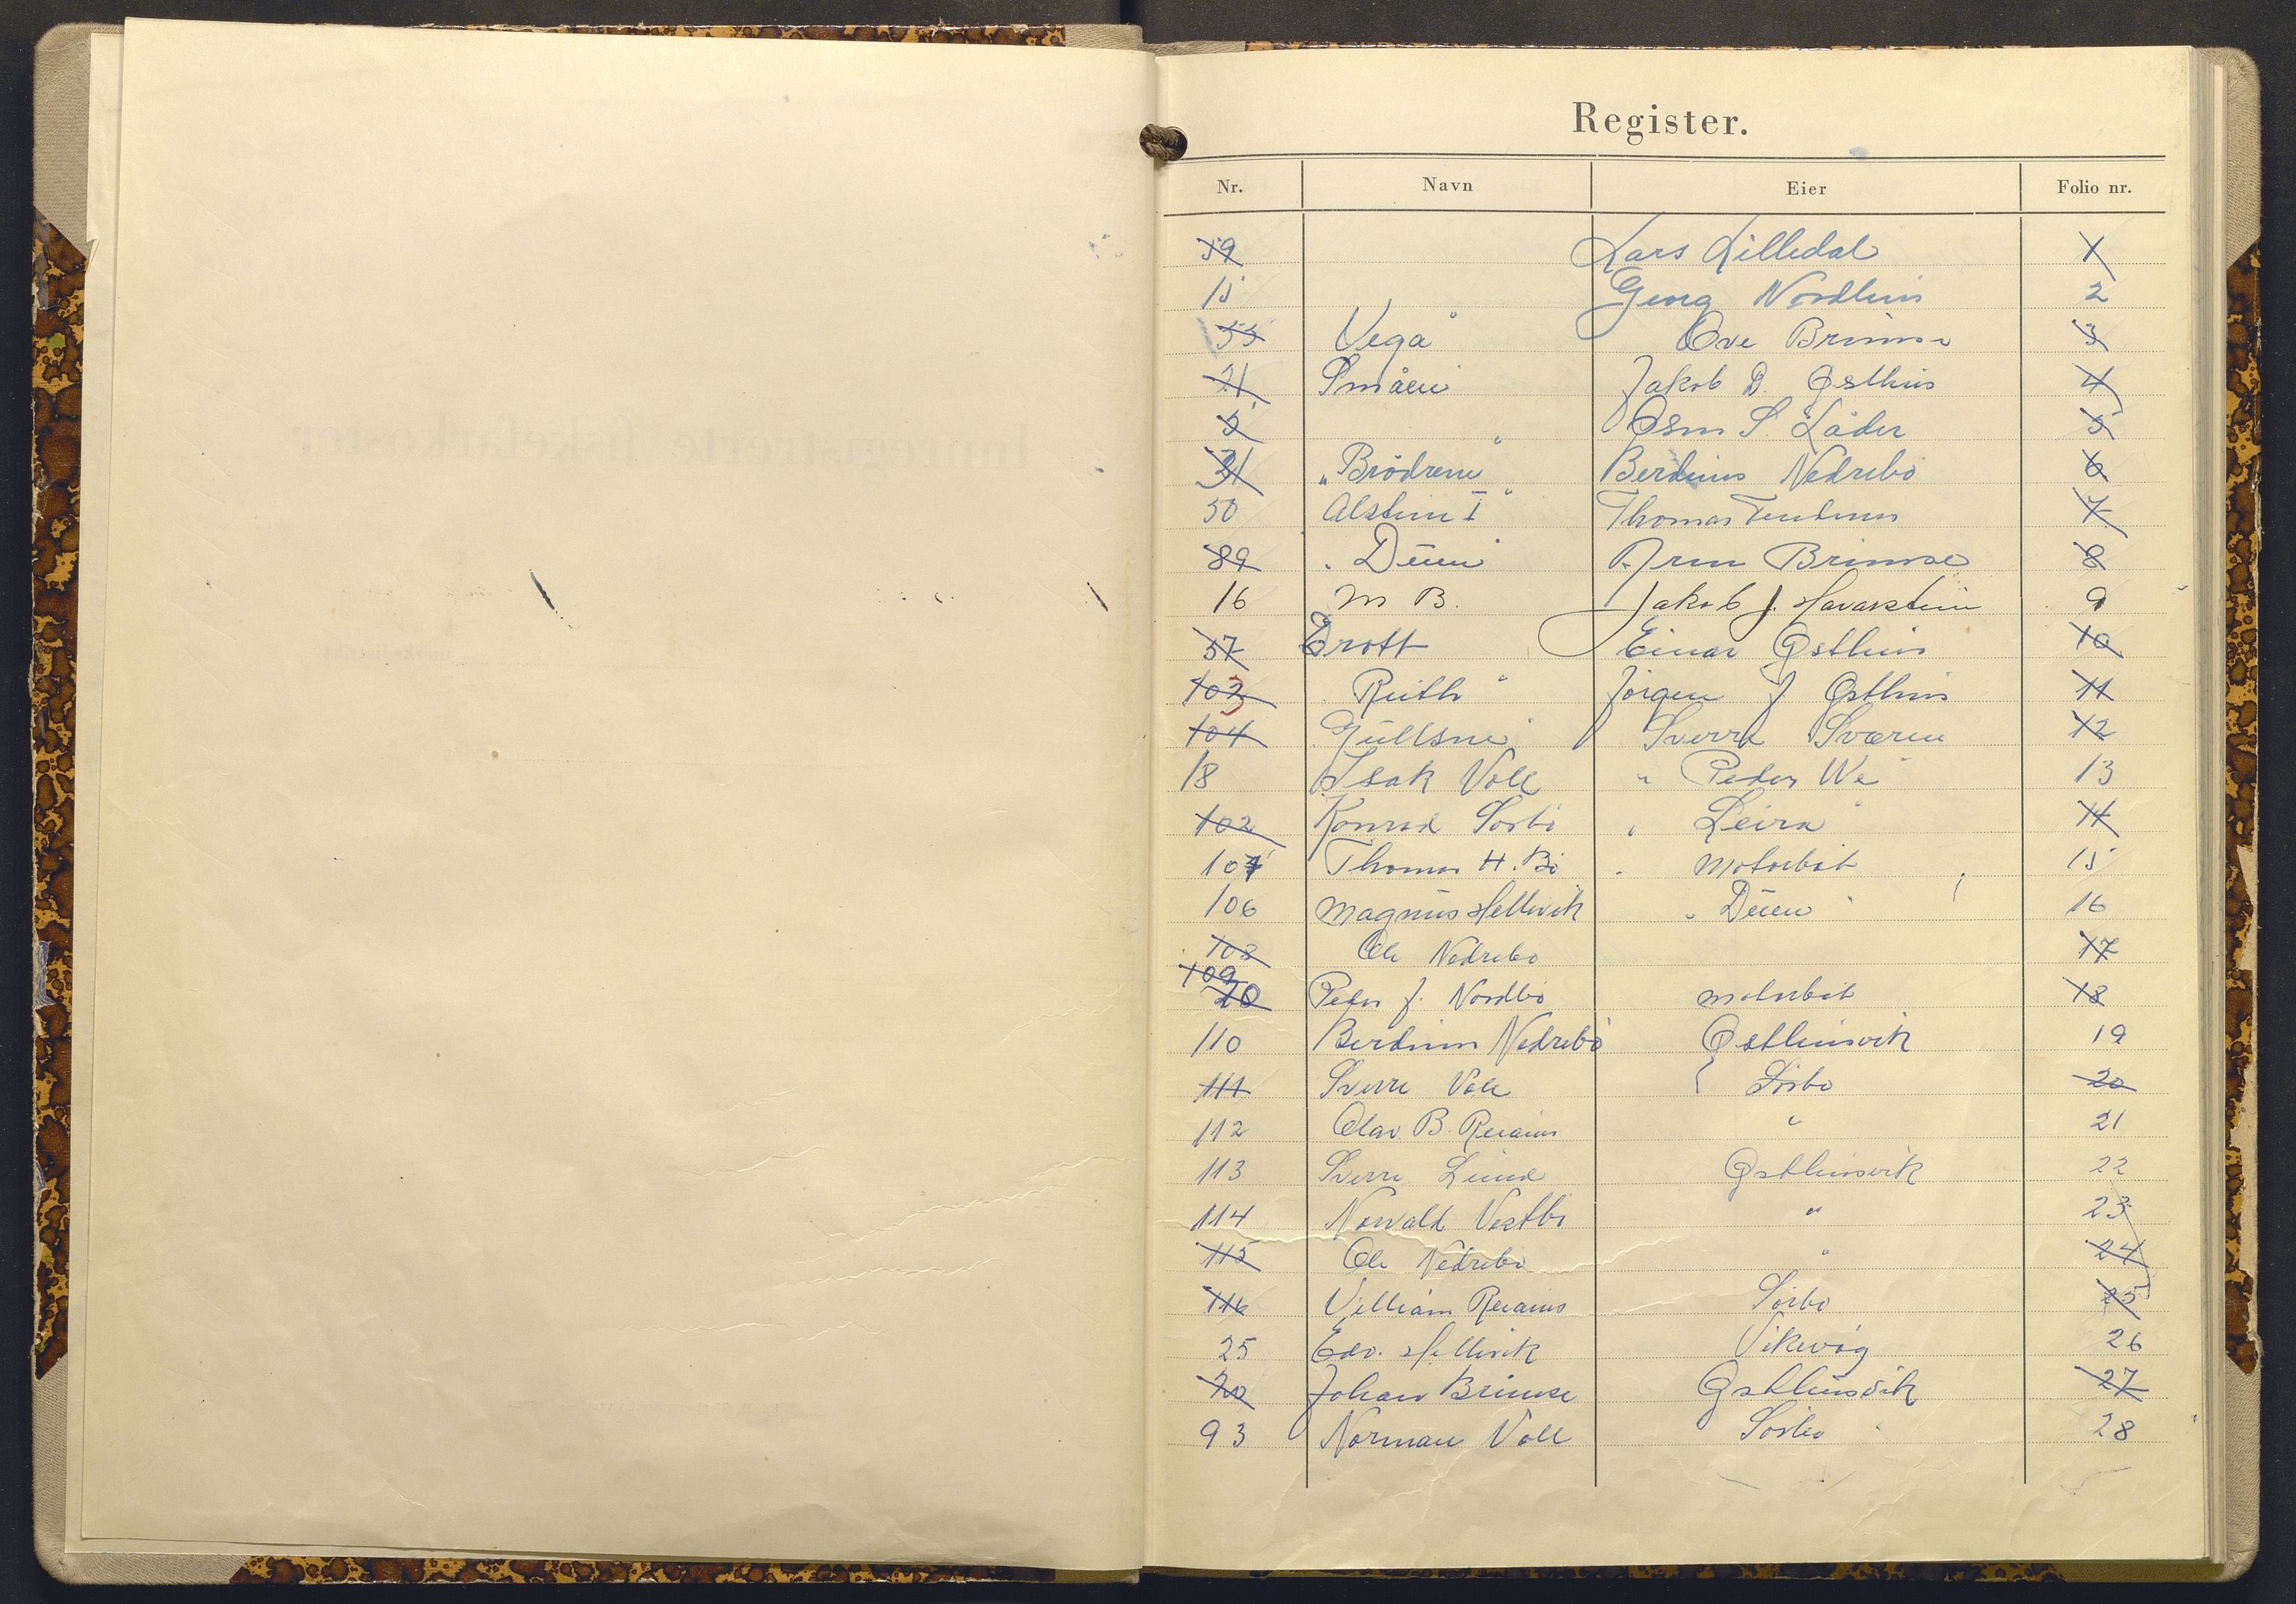 Register.
Nr. Navn Eier Folio nr.
59 Lars Lilledal 1
15 Georg Nordhus 2
55 Vega" Ove Brimse 3
21 Småen Jakob B. Østhus 4
5 Osm S. Låder 5
31 „Brödrene" Berdinus Nedrebö 6
50 Alstein I" Thomas 7
89 „Duen" Arne Brimse 8
16 M B. Jakob J. Havarstein 9
57 Brott Einar Østhus 10
103 Ruth" Jörgen J Østhus 11
104 Gullsne" Sverre Sværen 12
18 Isak Voll " Peder We" 13
102 Konrad Sörbö „ Leira" 14
107 Thomas H. Bö " Motorbåt 15
106 Magnus Hellevik „ Duen" 16
108 Ole Nedrebö 17
109
20 Peder J. Nordbö motorbåt 18
110 Berdinus Nedrebö Østhusvik 19
111 Sverre Voll Sörbö 20
112 Olav B. Reianes " 21
113 Sverre Lund Østhusvik 22
114 Norvald Vestbö " 23
115 Ole Nedrebö " 24
116 Villiam Reianes Sörbö 25
25 Edv. Hellevik Vikevåg 26
20 Johan Brimse Østhusvik 27
93 Norman Voll Sörbö 28